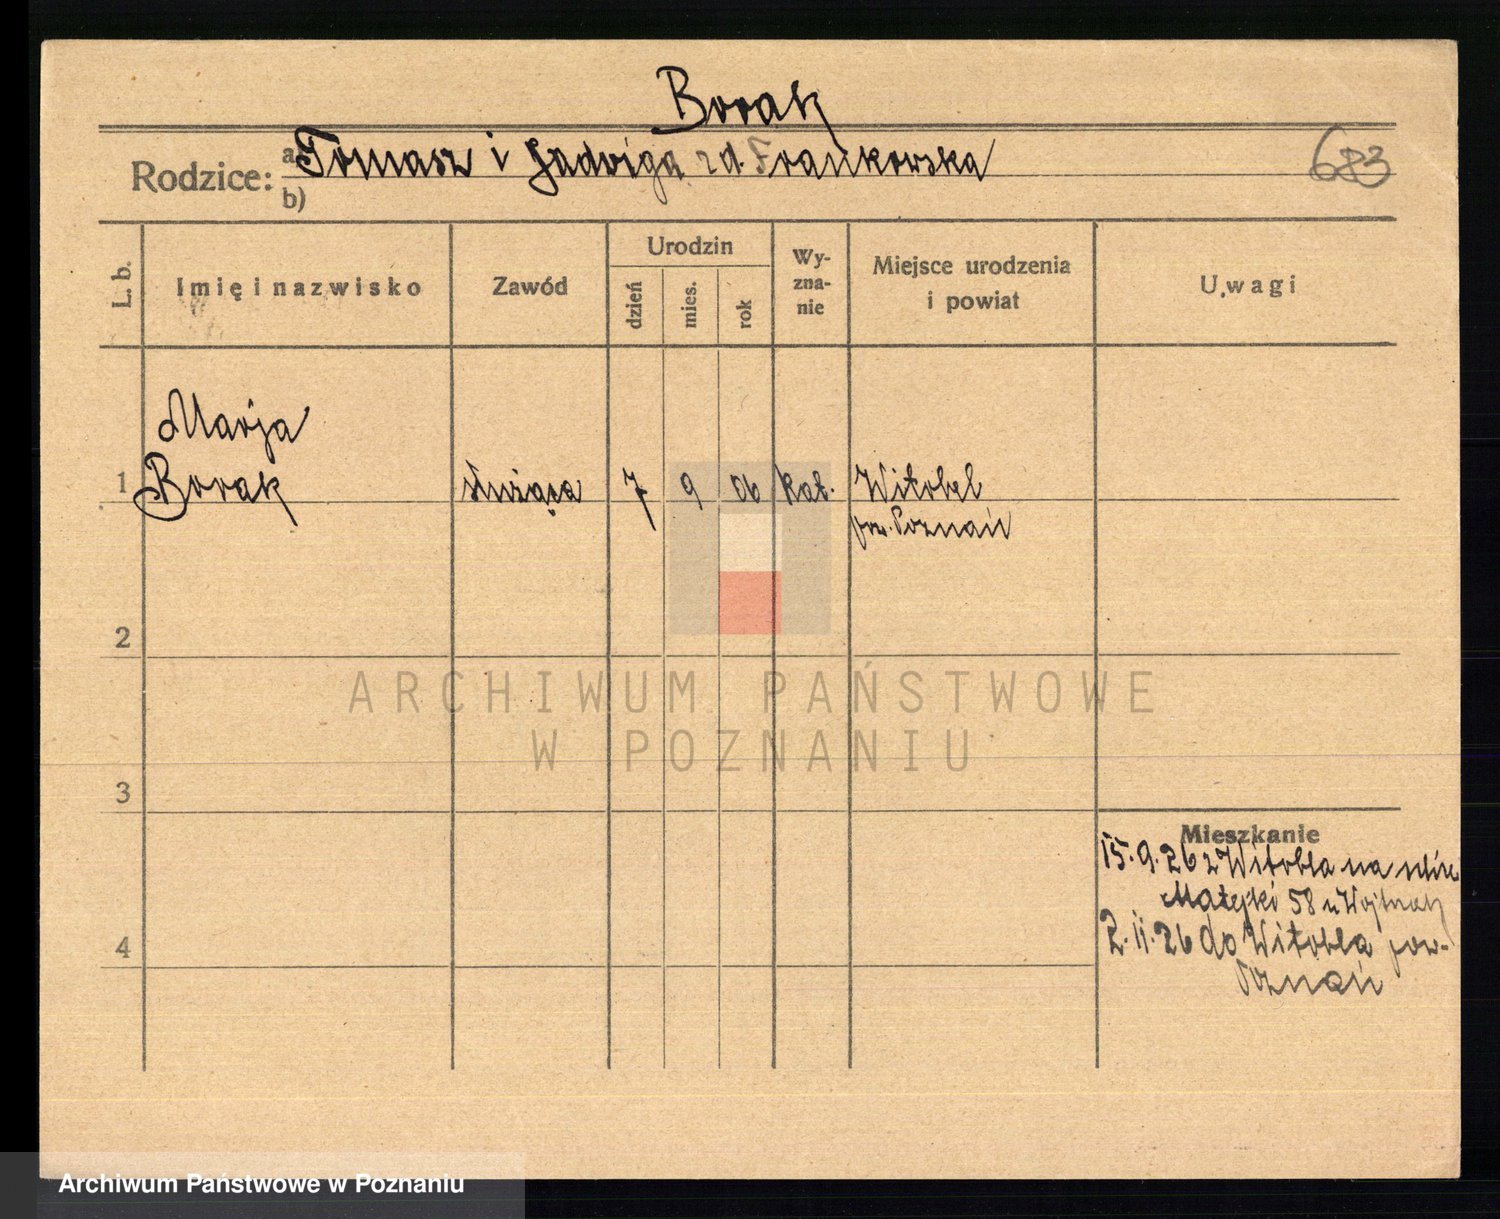 Borak
Rodzice: a) Tomasz i Jadwiga zd. Frankowska
b)
683
L. b.
Imię i nazwisko
Zawód
Urodzin
dzień
mies.
rok
Wy-
zna-
nie
Miejsce urodzenia
i powiat
Uwagi
Marja
1 Borak służąca 7 9 06 kat. Witobel
pow. Poznań
2
3
4
Mieszkanie
15.9.26 z Witobla na
Matejki 58 u
2.11.26 do Witobla pow.
Poznań
ARCHIWUM PAŃSTWOWE
W POZNANIU
Archiwum Państwowe w Poznaniu